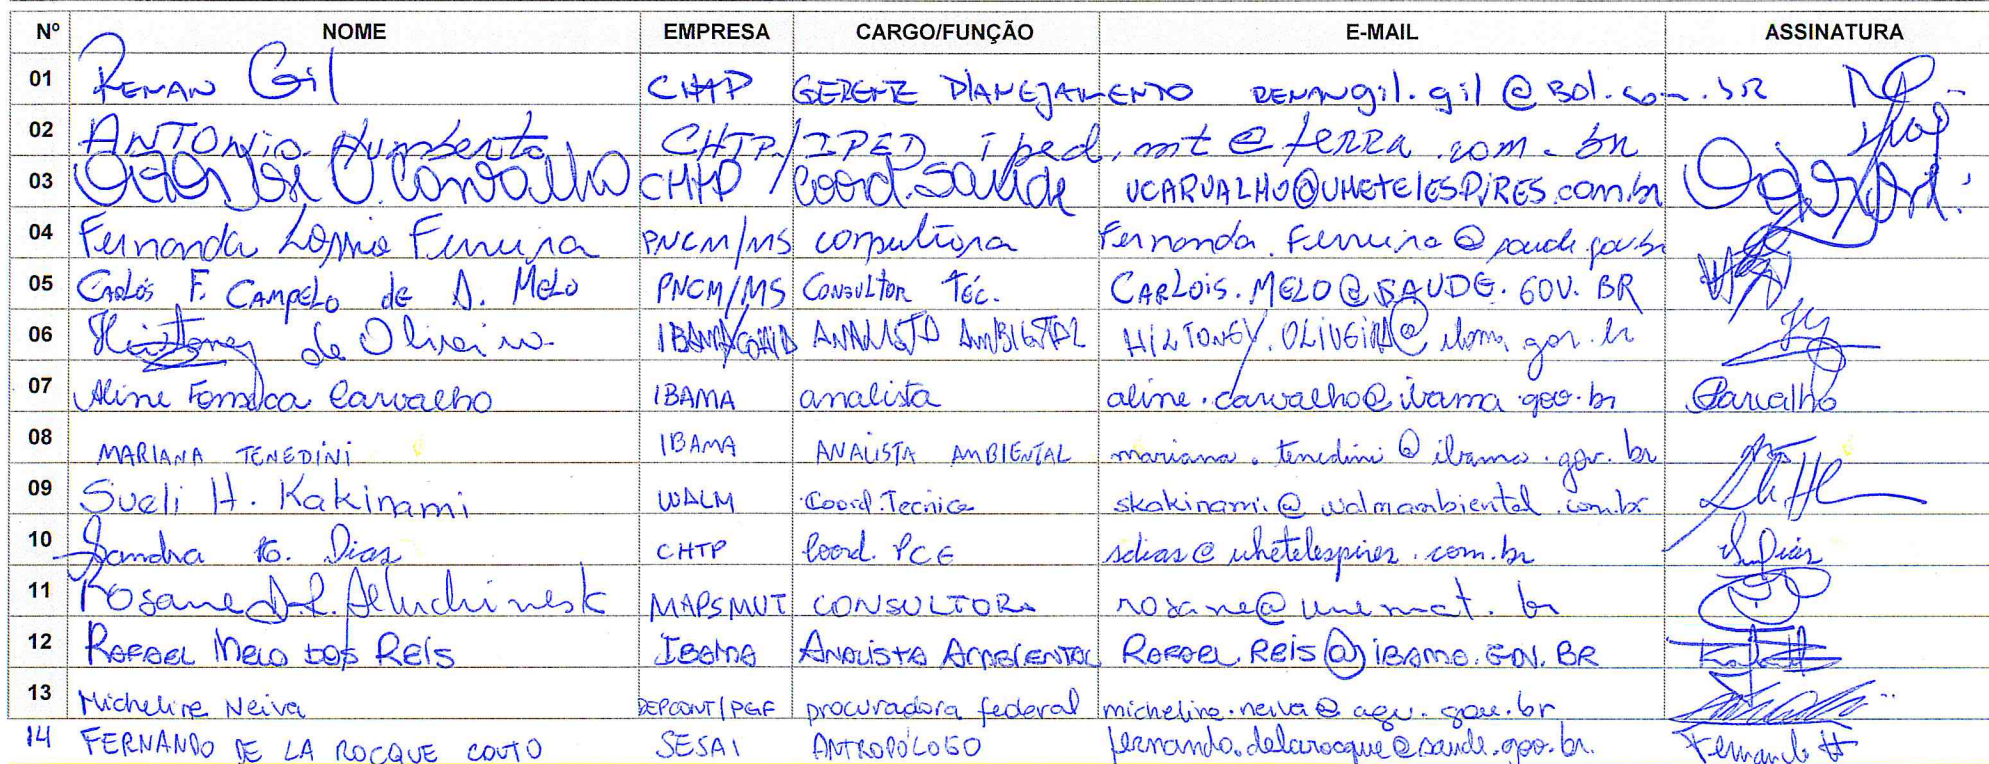 Nº NOME EMPRESA CARGO/FUNÇÃO E-MAIL ASSINATURA
01 RENAN Gil CHTP GERENTE PLANEJAMENTO RENANgil.gil@BOL.com.br
02 ANTONIO Humberto CHTP/IPED iped.mt@terra.com.br
03 José O. Carvalho CHTP Coord. Saúde VCARVALHO@UHETELESPIRES.com.br
04 Fernanda Ferreira PNCM/MS consultora Fernanda.Ferreira@saude.gov.br
05 CARLOS F. CAMPELO de A. MELO PNCM/MS CONSULTOR TÉC. CARLOIS.MELO@SAUDE.GOV.BR
06 Hiltoney de Oliveira IBAMA ANALISTA AMBIENTAL HILTONEY.OLIVEIRA@ibama.gov.br
07 Aline Fonseca Carvalho IBAMA analista aline.carvalho@ibama.gov.br Carvalho
08 MARIANA TENEDINI IBAMA ANALISTA AMBIENTAL mariana.tenedini@ibama.gov.br
09 Sueli H. Kakinami WALM Coord. Tecnica skakinami@walmambiental.com.br
10 Sandra Dias CHTP Coord. PCE sdias@uhetelespires.com.br Dias
11 Rosane MAPSMUT CONSULTORA rosane@unemat.br
12 RAFAEL MELO DOS REIS IBAMA ANALISTA AMBIENTAL RAFAEL.REIS@IBAMA.GOV.BR
13 Micheline Neiva DEPCONT/PGF procuradora federal micheline.neiva@agu.gov.br
14 FERNANDO DE LA ROCQUE COUTO SESAI ANTROPÓLOGO fernando.delarocque@saude.gov.br Fernando